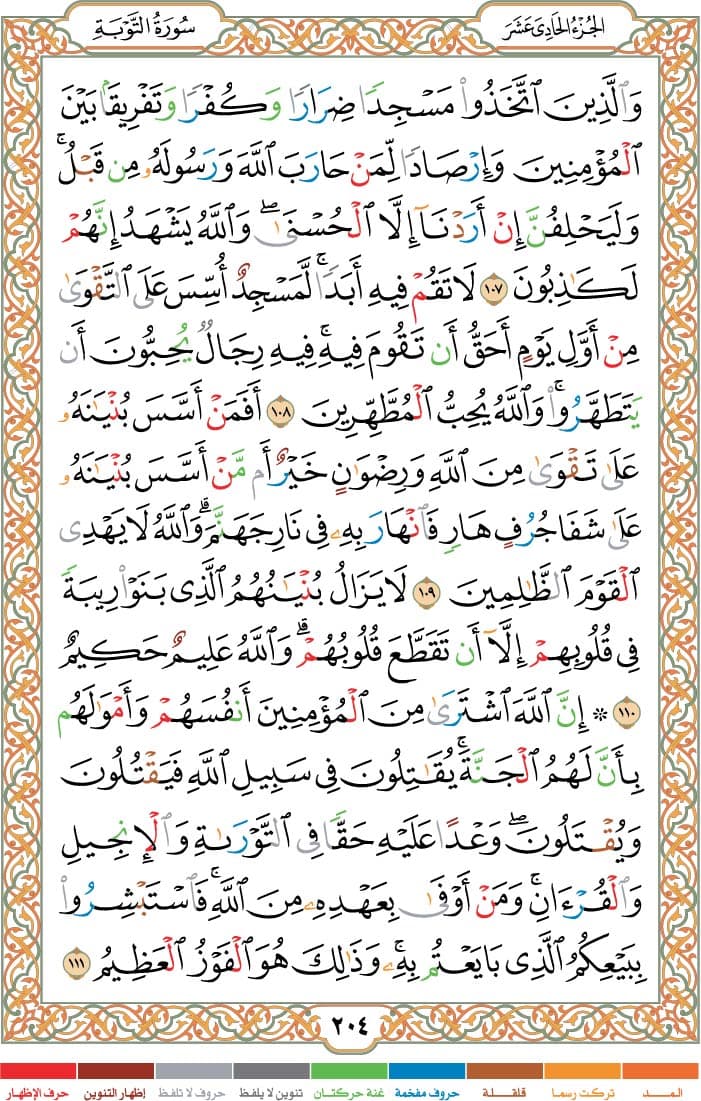 الجُزْءُ الحَادِى عَشَرَ
سُورَةُ التَّوْبَةِ
وَٱلَّذِينَ ٱتَّخَذُوا۟ مَسْجِدًا ضِرَارًا وَكُفْرًا وَتَفْرِيقًۢا بَيْنَ
ٱلْمُؤْمِنِينَ وَإِرْصَادًا لِّمَنْ حَارَبَ ٱللَّهَ وَرَسُولَهُۥ مِن قَبْلُ ۚ
وَلَيَحْلِفُنَّ إِنْ أَرَدْنَآ إِلَّا ٱلْحُسْنَىٰ ۖ وَٱللَّهُ يَشْهَدُ إِنَّهُمْ
لَكَـٰذِبُونَ ١٠٧ لَا تَقُمْ فِيهِ أَبَدًا ۚ لَّمَسْجِدٌ أُسِّسَ عَلَى ٱلتَّقْوَىٰ
مِنْ أَوَّلِ يَوْمٍ أَحَقُّ أَن تَقُومَ فِيهِ ۚ فِيهِ رِجَالٌ يُحِبُّونَ أَن
يَتَطَهَّرُوا۟ ۚ وَٱللَّهُ يُحِبُّ ٱلْمُطَّهِّرِينَ ١٠٨ أَفَمَنْ أَسَّسَ بُنْيَـٰنَهُۥ
عَلَىٰ تَقْوَىٰ مِنَ ٱللَّهِ وَرِضْوَٰنٍ خَيْرٌ أَم مَّنْ أَسَّسَ بُنْيَـٰنَهُۥ
عَلَىٰ شَفَا جُرُفٍ هَارٍ فَٱنْهَارَ بِهِۦ فِى نَارِ جَهَنَّمَ ۗ وَٱللَّهُ لَا يَهْدِى
ٱلْقَوْمَ ٱلظَّـٰلِمِينَ ١٠٩ لَا يَزَالُ بُنْيَـٰنُهُمُ ٱلَّذِى بَنَوْا۟ رِيبَةً
فِى قُلُوبِهِمْ إِلَّآ أَن تَقَطَّعَ قُلُوبُهُمْ ۗ وَٱللَّهُ عَلِيمٌ حَكِيمٌ
١١٠ * إِنَّ ٱللَّهَ ٱشْتَرَىٰ مِنَ ٱلْمُؤْمِنِينَ أَنفُسَهُمْ وَأَمْوَٰلَهُم
بِأَنَّ لَهُمُ ٱلْجَنَّةَ ۚ يُقَـٰتِلُونَ فِى سَبِيلِ ٱللَّهِ فَيَقْتُلُونَ
وَيُقْتَلُونَ ۖ وَعْدًا عَلَيْهِ حَقًّا فِى ٱلتَّوْرَىٰةِ وَٱلْإِنجِيلِ
وَٱلْقُرْءَانِ ۚ وَمَنْ أَوْفَىٰ بِعَهْدِهِۦ مِنَ ٱللَّهِ ۚ فَٱسْتَبْشِرُوا۟
بِبَيْعِكُمُ ٱلَّذِى بَايَعْتُم بِهِۦ ۚ وَذَٰلِكَ هُوَ ٱلْفَوْزُ ٱلْعَظِيمُ ١١١
٢٠٤
المــــد تركت رسما قلقلة حروف مفخمة غنة حركتان تنوين لا يلفظ حروف لا تلفظ إظهار التنوين حرف الإظهار